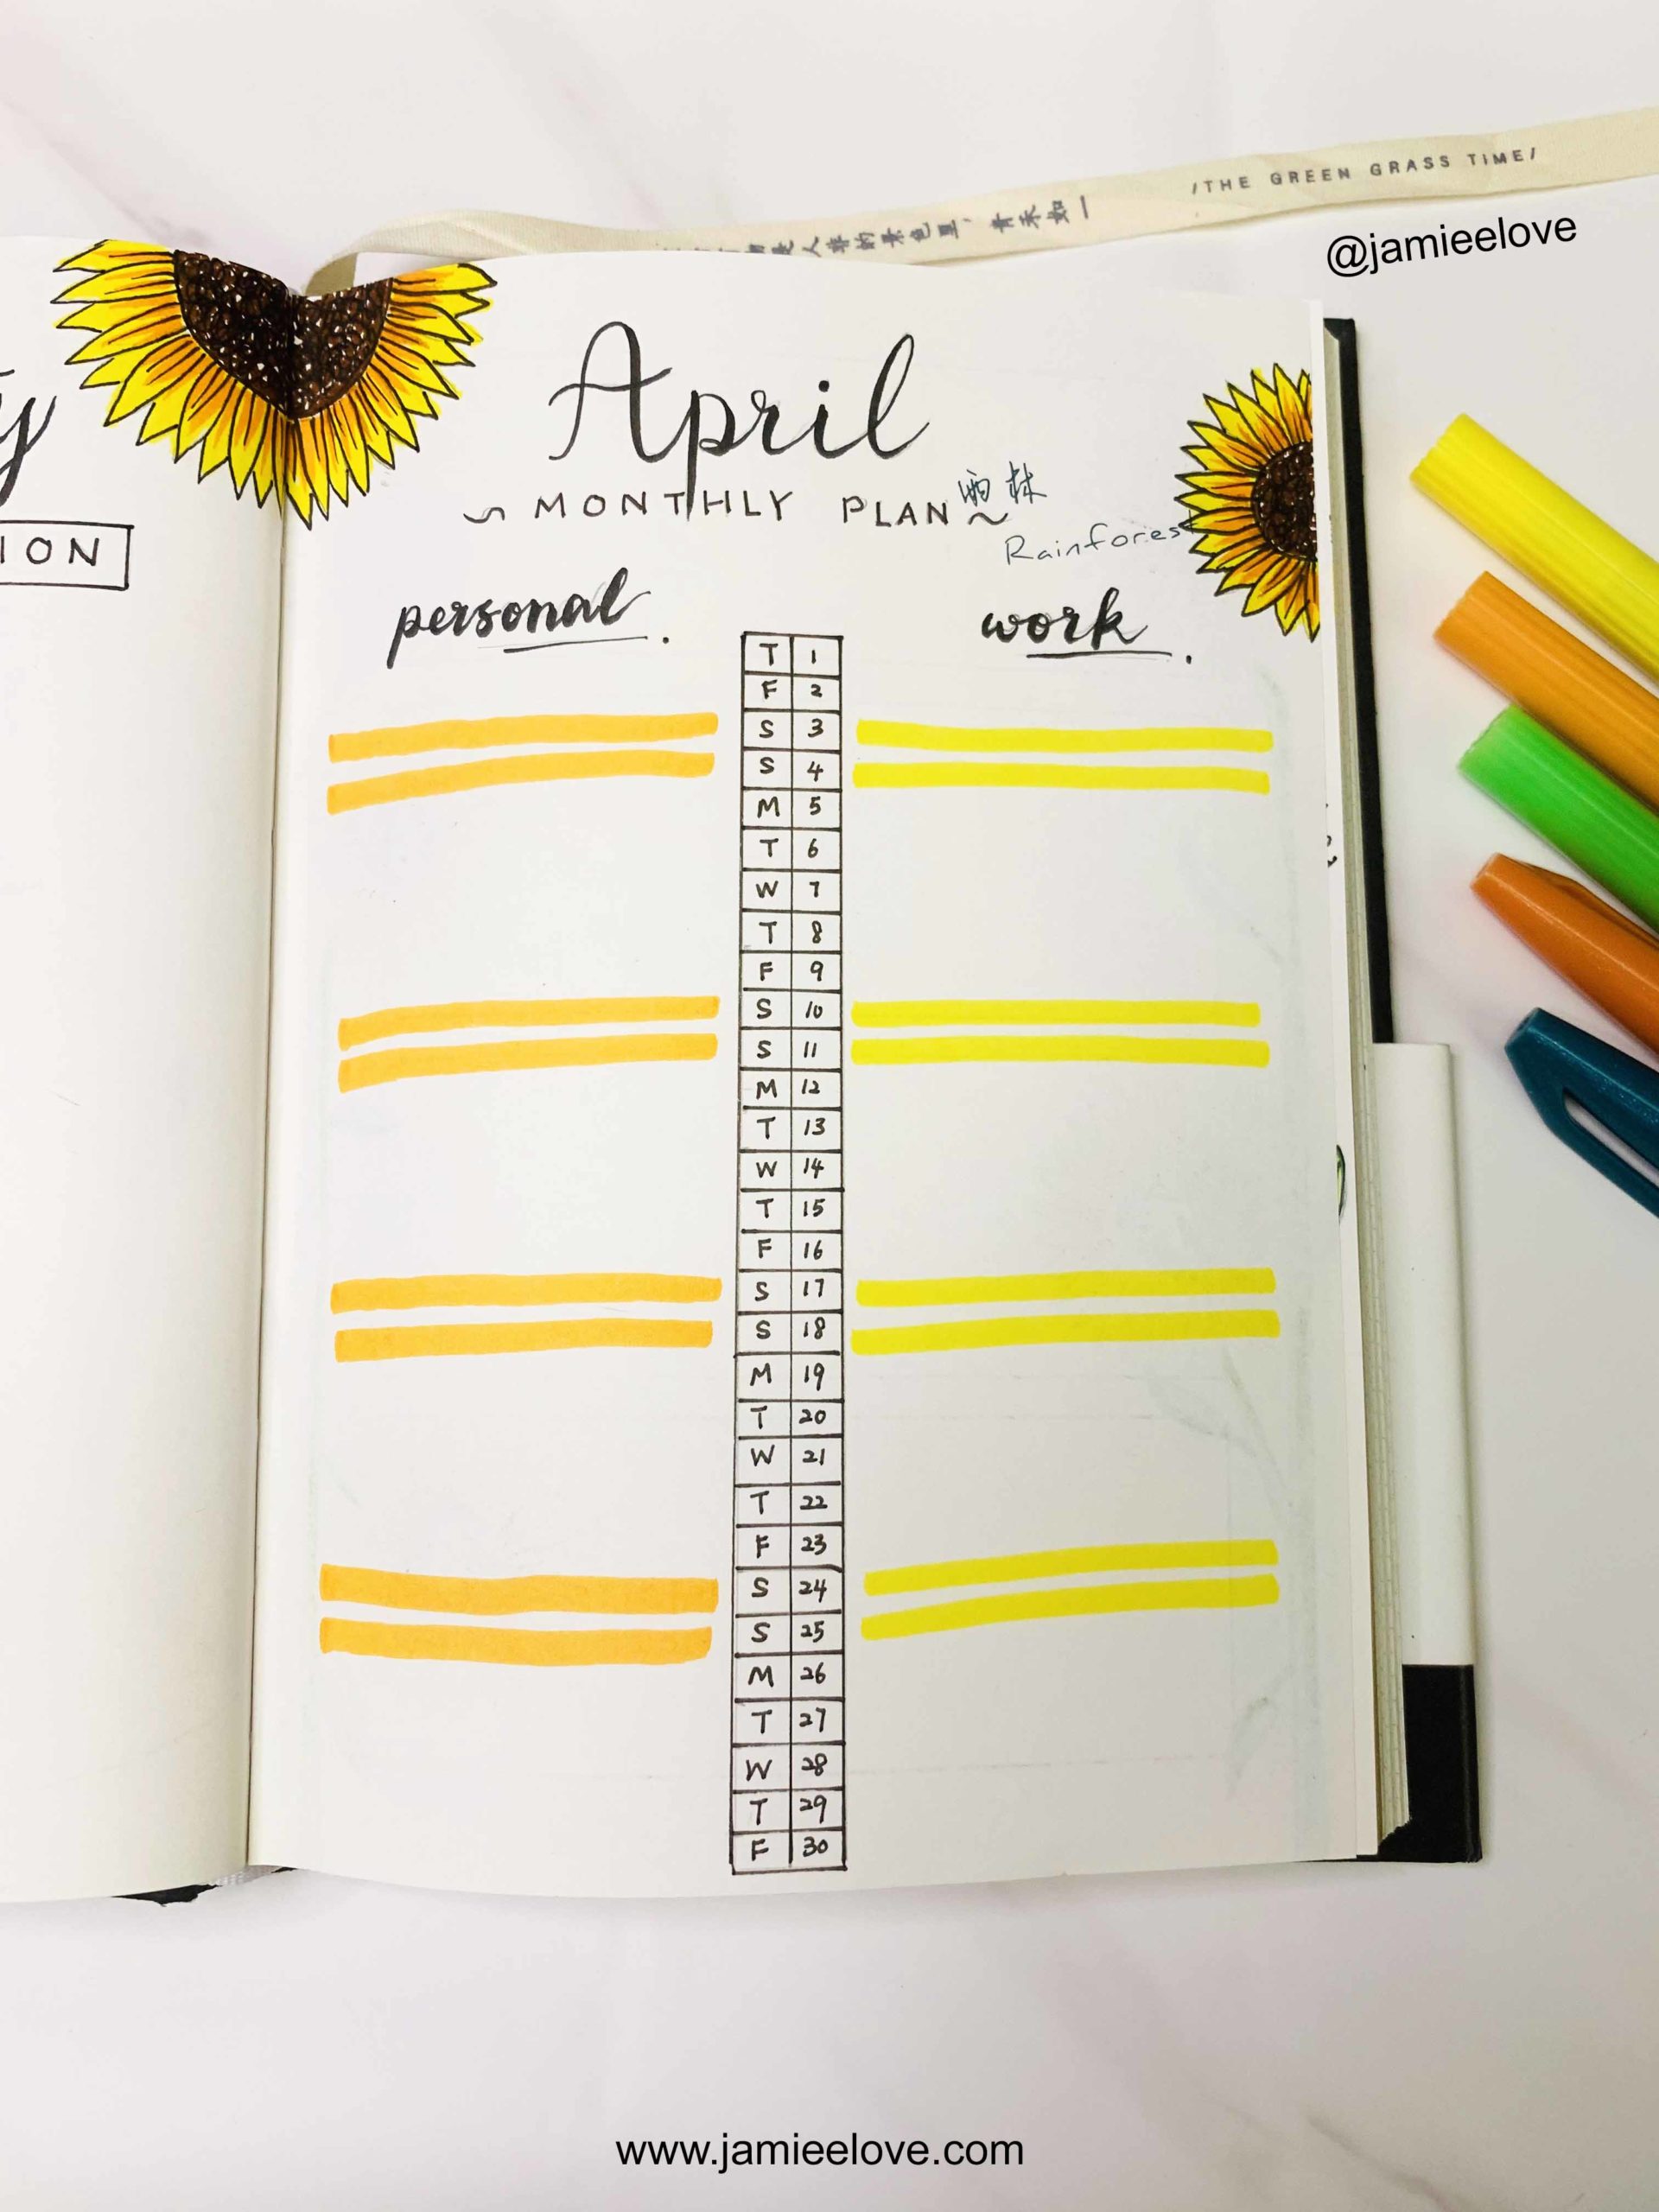 /THE GREEN GRASS TIME/
@jamieelove
April
~ MONTHLY PLAN ~
雨林
Rainforest
ION
personal.
work.
T 1
F 2
S 3
S 4
M 5
T 6
W 7
T 8
F 9
S 10
S 11
M 12
T 13
W 14
T 15
F 16
S 17
S 18
M 19
T 20
W 21
T 22
F 23
S 24
S 25
M 26
T 27
W 28
T 29
F 30
www.jamieelove.com